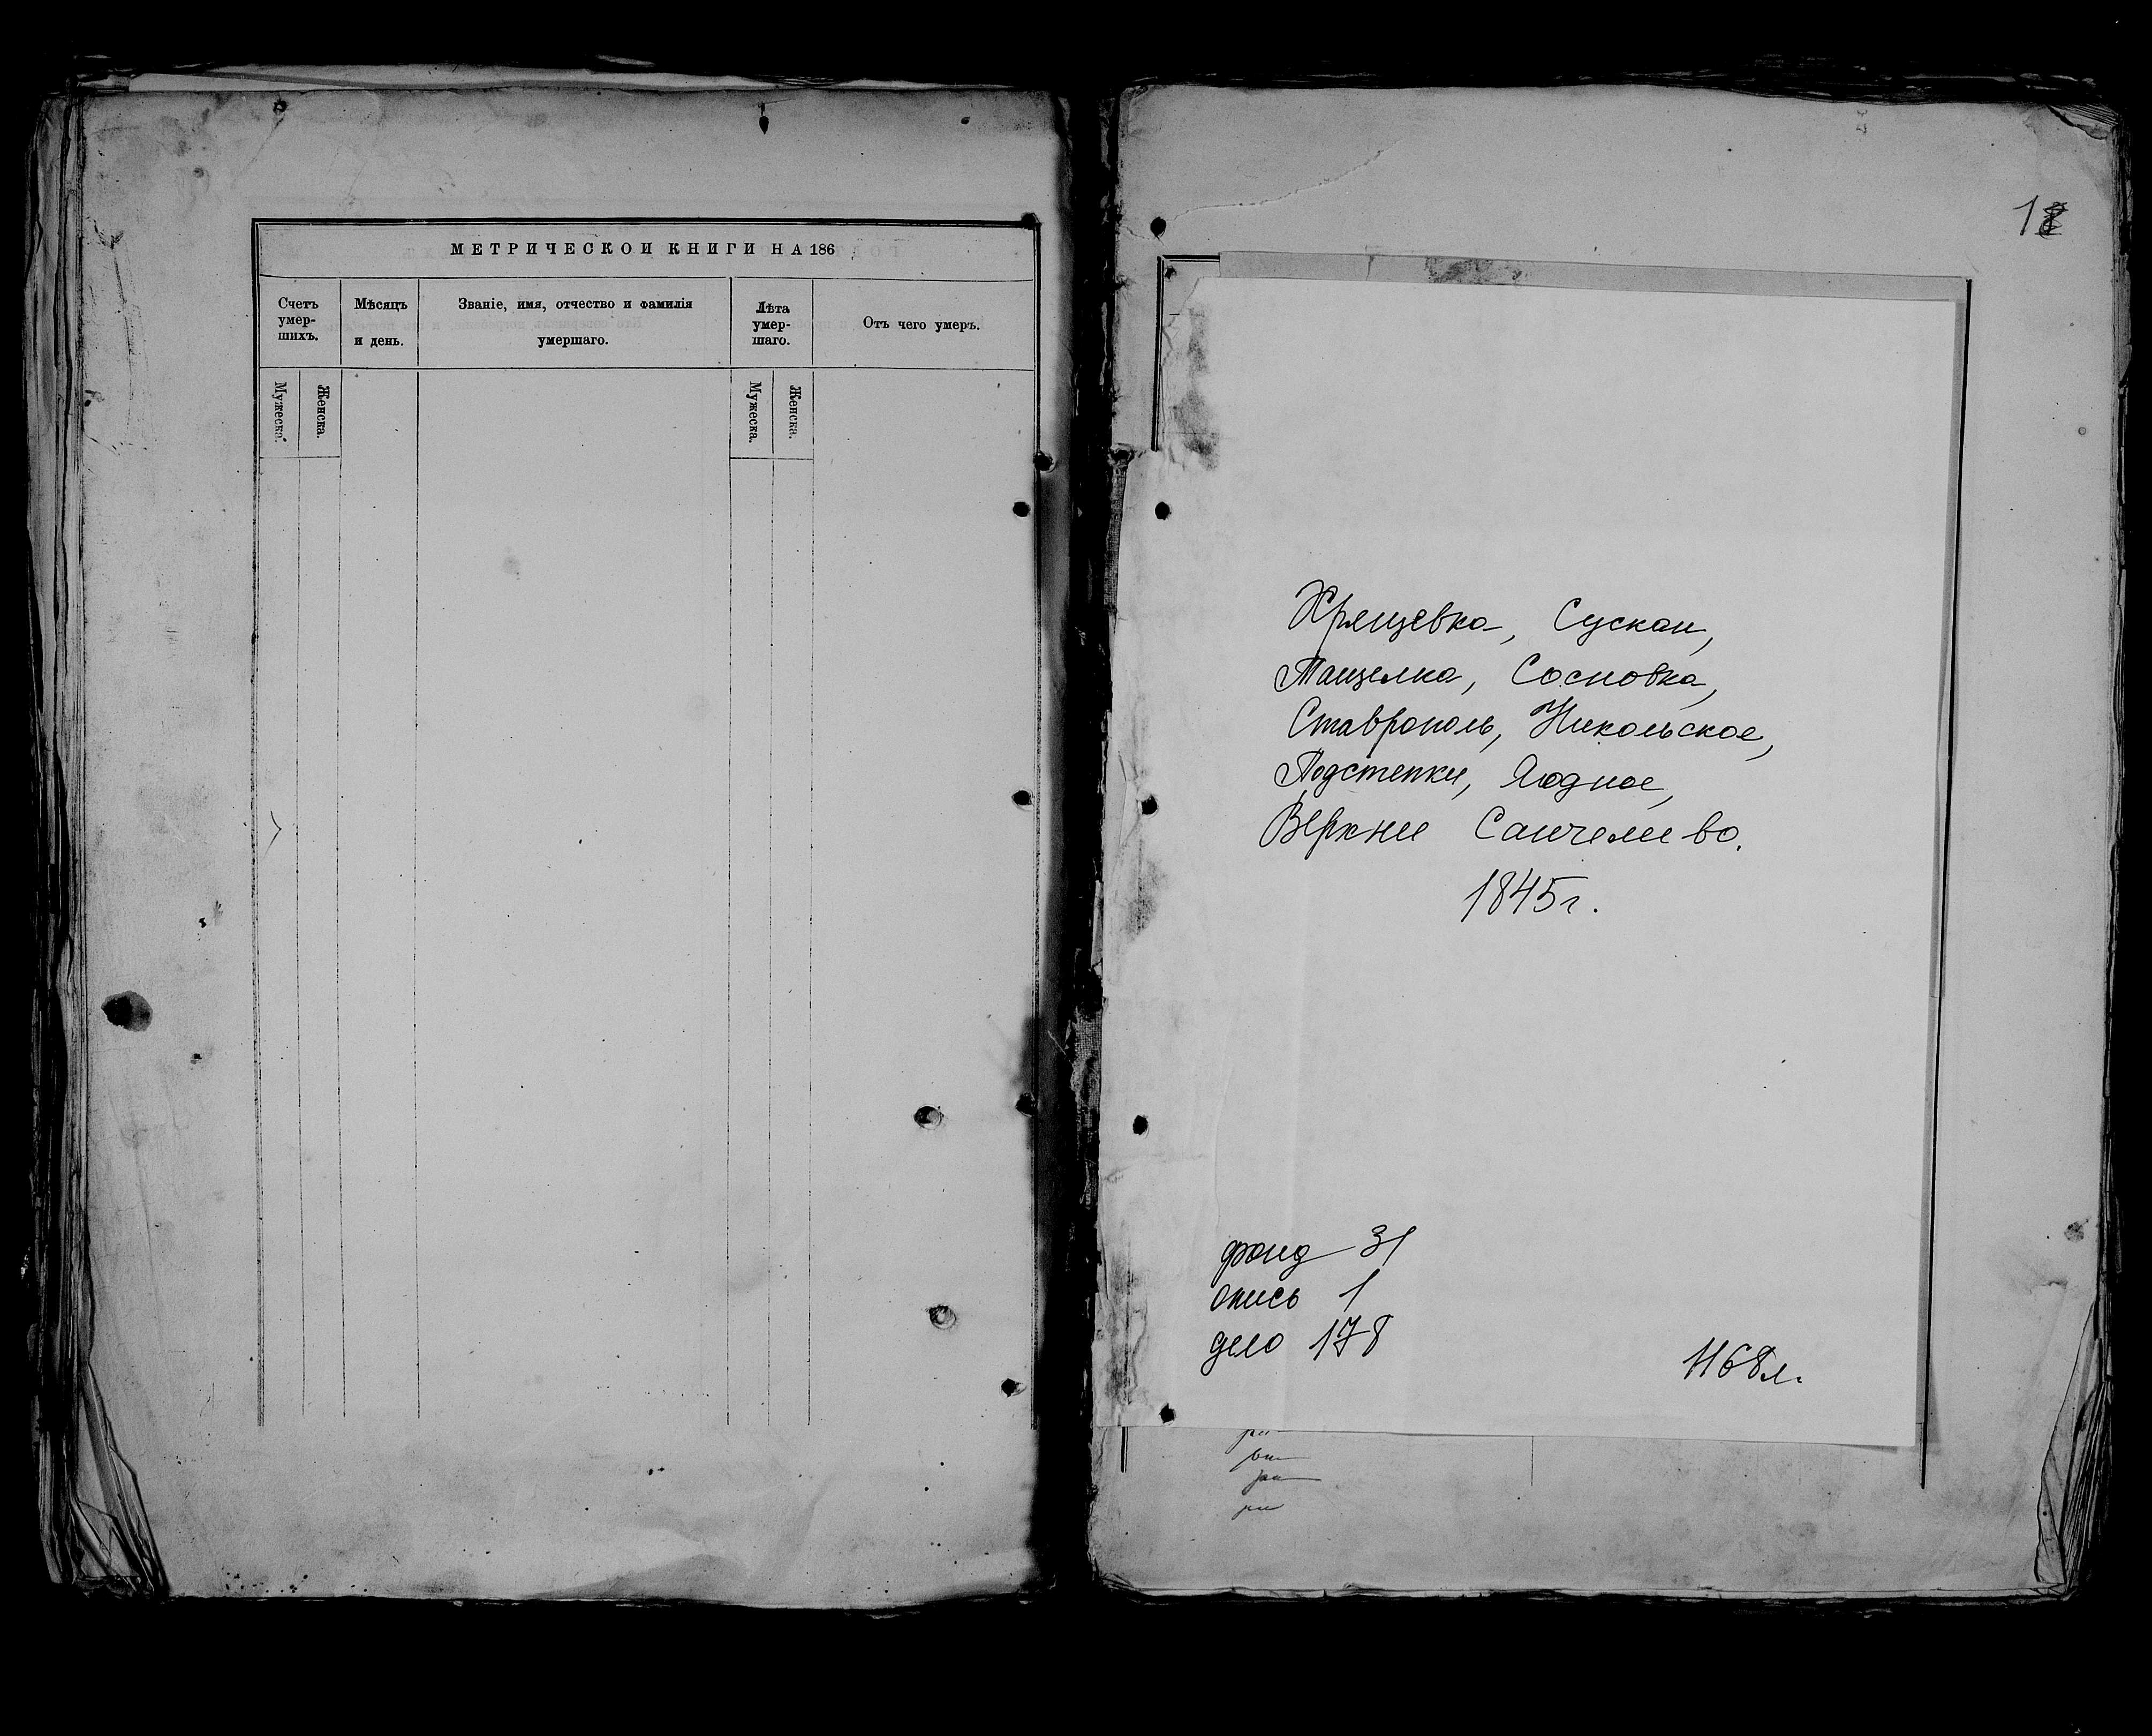 МЕТРИЧЕСКОИ КНИГИ НА 186
Счетъ умер-шихъ.
Мѣсяцъ и день.
Званіе, имя, отчество и фамилія умершаго.
Лѣта умер-шаго.
Отъ чего умеръ.
Мужеска.
Женска.
Мужеска.
Женска.
Хрящевка, Сускан,
Ташелка, Сосновка,
Ставрополь, Никольское,
Подстепки, Ягодное,
Верхнее Санчелеево.
1845г.
фонд 31
опись 1
дело 178
1168л.